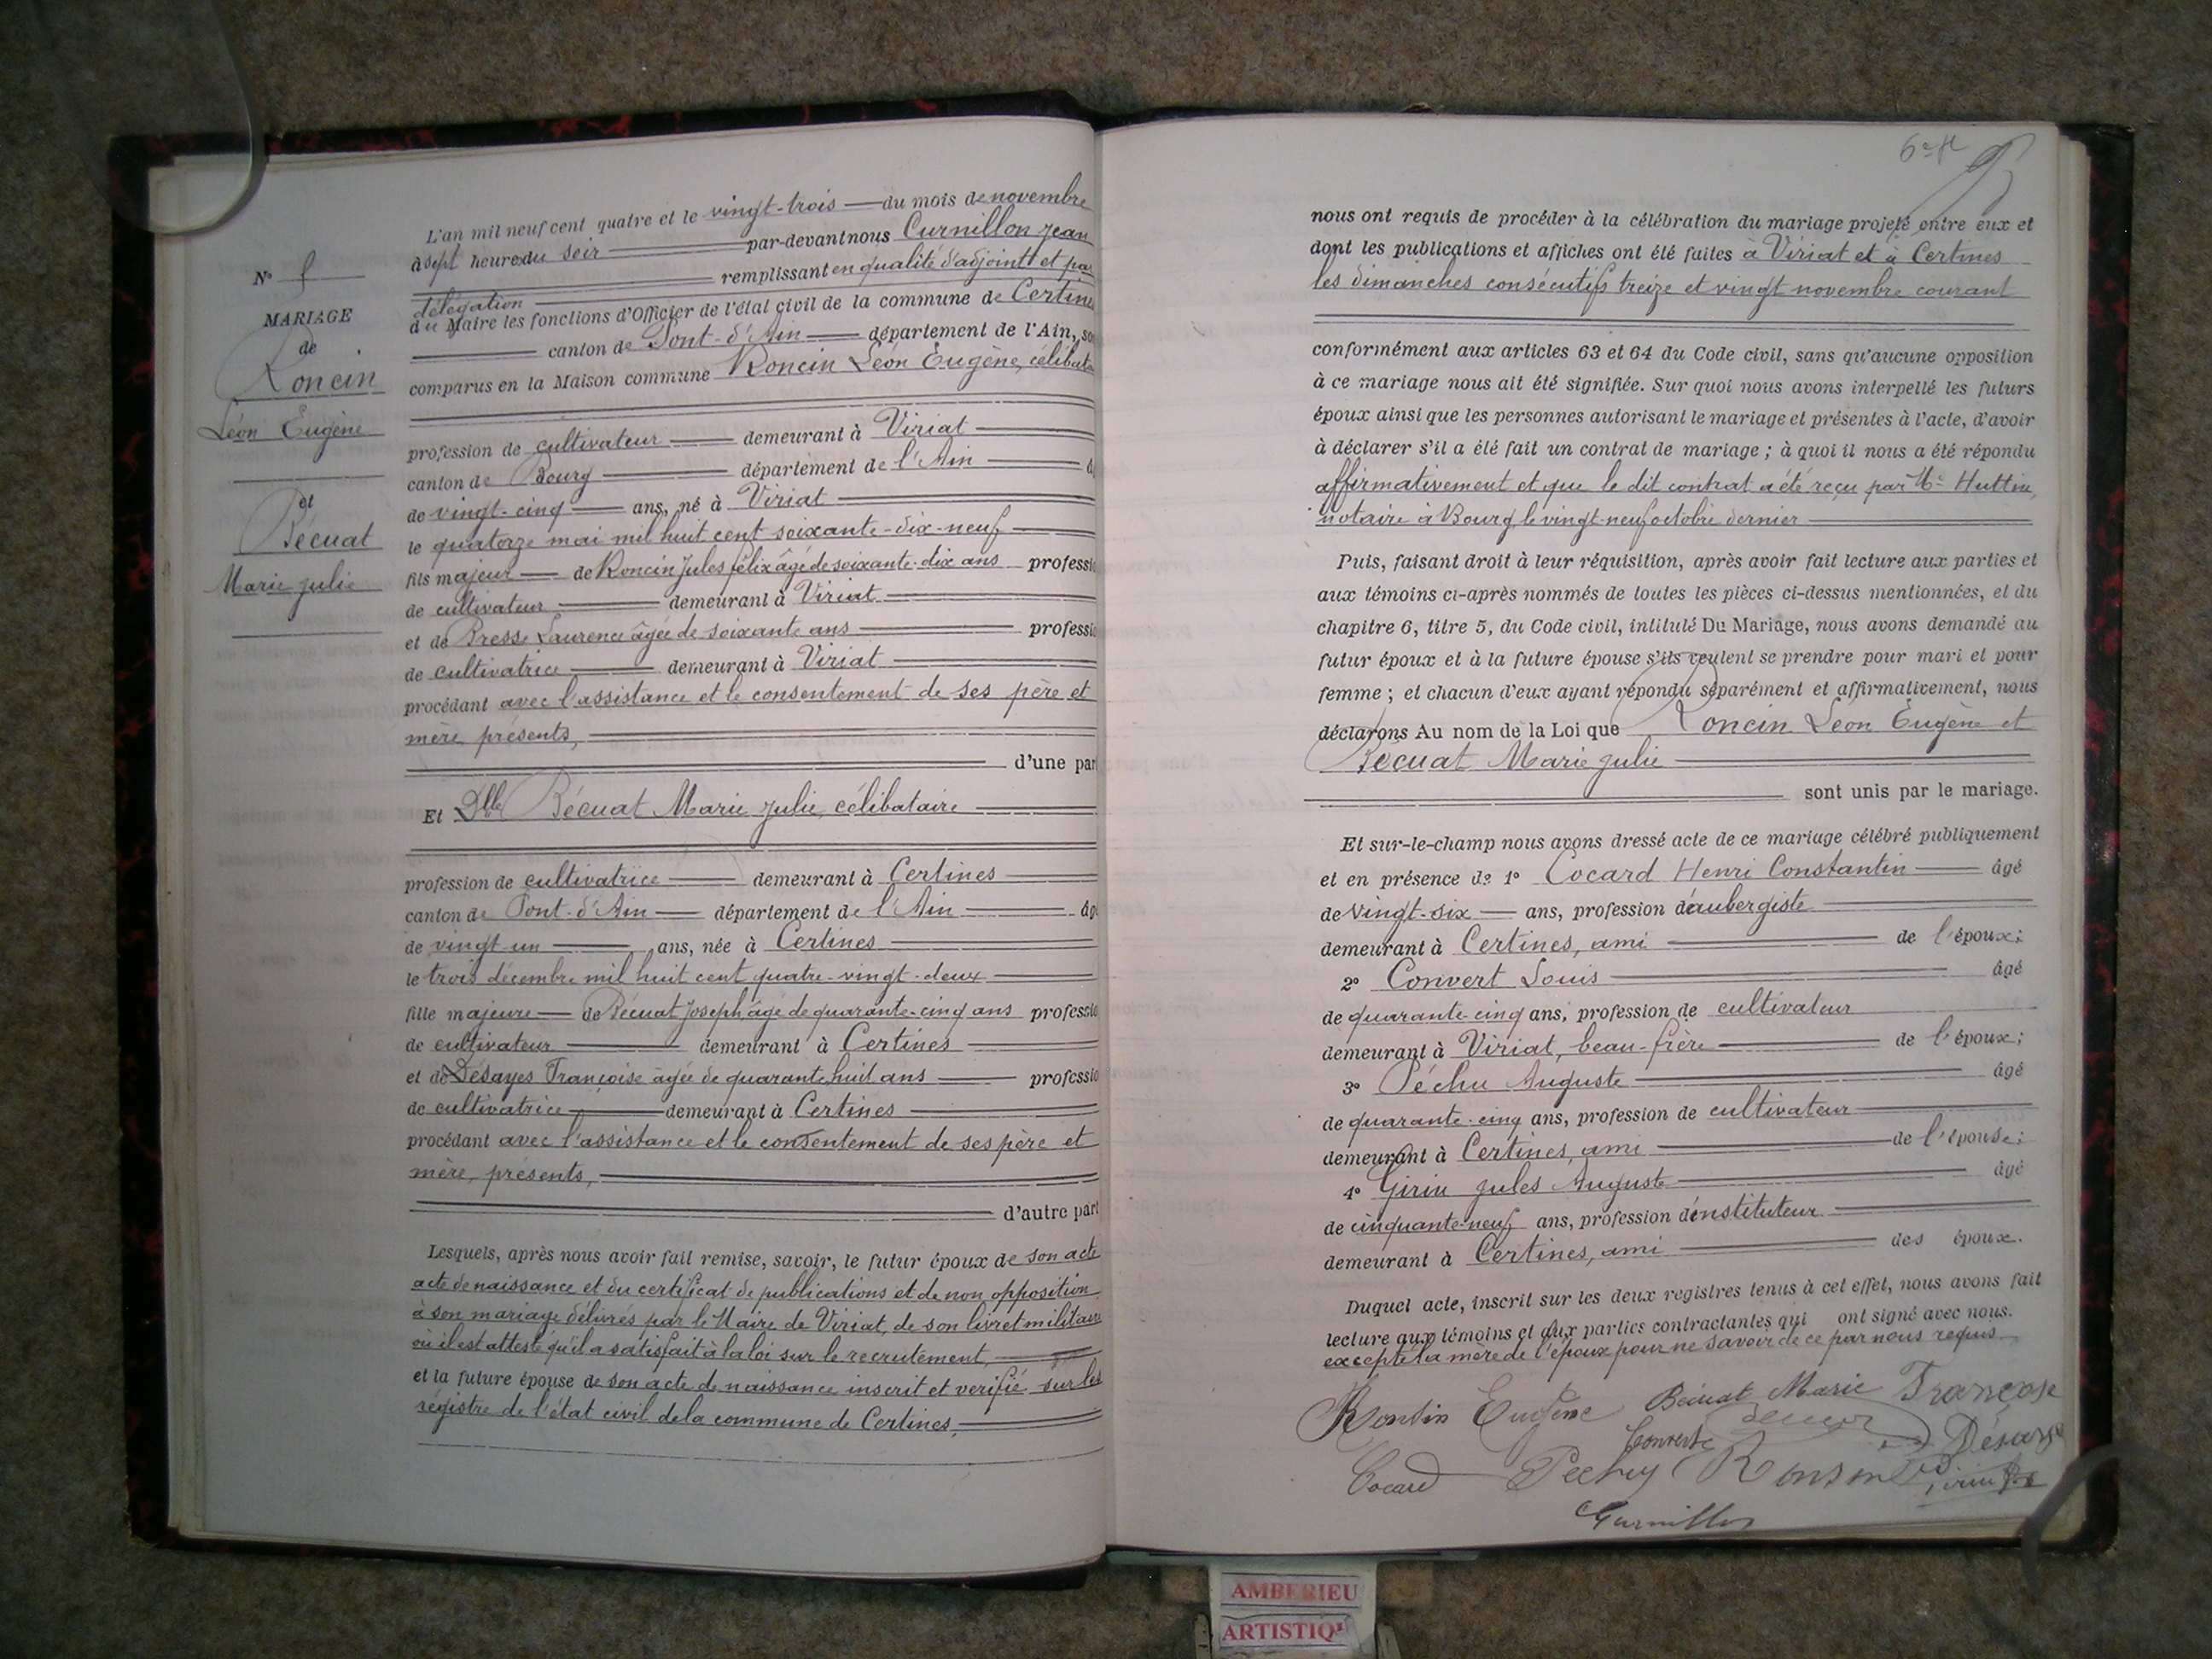 N°
MARIAGE
de
Roncin
Léon Eugène
et
Bécuat
Marie Julie
L'an mil neuf cent quatre et le vingt-trois du mois de novembre
à sept heures du soir par-devant nous Curnillon Jean
remplissant en qualité d'adjoint et par
délégation
du Maire les fonctions d'Officier de l'état civil de la commune de Certines
canton de Pont-d'Ain département de l'Ain, so
comparus en la Maison commune Roncin Léon Eugène, célibat
profession de cultivateur demeurant à Viriat
canton de Bourg département de l'Ain
de vingt-cinq ans, né à Viriat
le quatorze mai mil huit cent soixante-dix-neuf
fils majeur de Roncin Jules félix âgé de soixante-dix ans professi
de cultivateur demeurant à Viriat
et de Presse Laurence âgée de soixante ans professi
de cultivatrice demeurant à Viriat
procédant avec l'assistance et le consentement de ses père et
mère, présents,
d'une par
Et Dlle Bécuat Marie Julie, célibataire
profession de cultivatrice demeurant à Certines
canton de Pont-d'Ain département de l'Ain âg
de vingt-un ans, née à Certines
le trois décembre mil huit cent quatre-vingt-deux
fille majeure de Bécuat Joseph, âgé de quarante-cinq ans professio
de cultivateur demeurant à Certines
et de Désayes Françoise âgée de quarante huit ans professio
de cultivatrice demeurant à Certines
procédant avec l'assistance et le consentement de ses père et
mère, présents,
d'autre part
Lesquels, après nous avoir fait remise, savoir, le futur époux de son acte
acte de naissance et du certificat de publications et de non opposition
à son mariage délivrés par le Maire de Viriat, de son livret militaire
où il est attesté qu'il a satisfait à la loi sur le recrutement,
et la future épouse de son acte de naissance inscrit et verifié sur les
régistre de l'état civil de la commune de Certines,
nous ont requis de procéder à la célébration du mariage projeté entre eux et
dont les publications et affiches ont été faites à Viriat et à Certines
les dimanches consécutifs treize et vingt novembre courant
conformément aux articles 63 et 64 du Code civil, sans qu'aucune opposition
à ce mariage nous ait été signifiée. Sur quoi nous avons interpellé les futurs
époux ainsi que les personnes autorisant le mariage et présentes à l'acte, d'avoir
à déclarer s'il a été fait un contrat de mariage ; à quoi il nous a été répondu
affirmativement et que le dit contrat a été reçu par Me Huttin,
notaire à Bourg, le vingt-neuf octobre dernier
Puis, faisant droit à leur réquisition, après avoir fait lecture aux parties et
aux témoins ci-après nommés de toutes les pièces ci-dessus mentionnées, et du
chapitre 6, titre 5, du Code civil, intitulé Du Mariage, nous avons demandé au
futur époux et à la future épouse s'ils veulent se prendre pour mari et pour
femme ; et chacun d'eux ayant répondu séparément et affirmativement, nous
déclarons Au nom de la Loi que Roncin Léon Eugène et
Bécuat Marie Julie
sont unis par le mariage.
Et sur-le-champ nous avons dressé acte de ce mariage célébré publiquement
et en présence de 1° Cocard Henri Constantin âgé
de vingt-six ans, profession d'aubergiste
demeurant à Certines, ami de l'époux;
2° Convert Louis âgé
de quarante-cinq ans, profession de cultivateur
demeurant à Viriat, beau-frère de l'époux;
3° Péchu Auguste âgé
de quarante-cinq ans, profession de cultivateur
demeurant à Certines, ami de l'épouse;
4° Girin Jules Auguste âgé
de cinquante-neuf ans, profession d'instituteur
demeurant à Certines, ami des époux.
Duquel acte, inscrit sur les deux registres tenus à cet effet, nous avons fait
lecture aux témoins et aux parties contractantes qui ont signé avec nous.
excepté la mère de l'époux pour ne savoir de ce par nous requis
Ronsin Eugène Bécuat Marie Françoise
Convert Désayes
Cocard Pechu Ronsin
Curnillon
AMBERIEU
ARTISTIQ